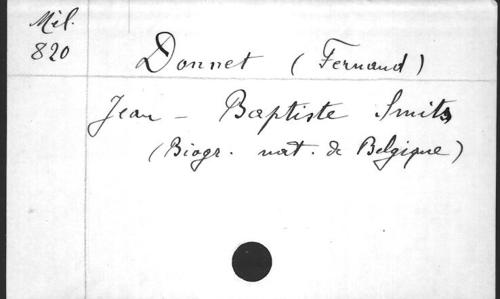 Mil.
820
Donnet (Fernand)
Jean - Baptiste Smits
(Biogr. nat. de Belgique)